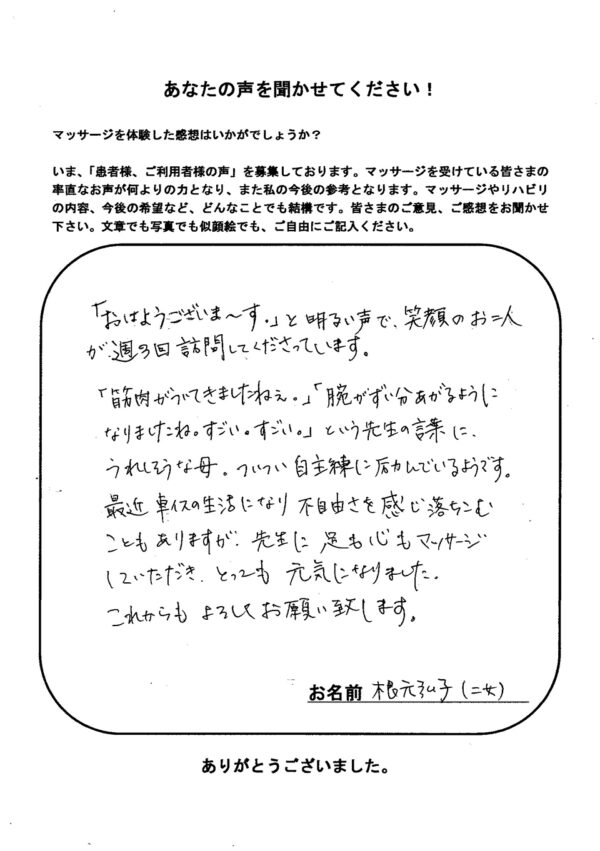 あなたの声を聞かせてください！
マッサージを体験した感想はいかがでしょうか？
いま、「患者様、ご利用者様の声」を募集しております。マッサージを受けている皆さまの
率直なお声が何よりの力となり、また私の今後の参考となります。マッサージやリハビリ
の内容、今後の希望など、どんなことでも結構です。皆さまのご意見、ご感想をお聞かせ
下さい。文章でも写真でも似顔絵でも、ご自由にご記入ください。
「おはようございま〜す。」と明るい声で、笑顔のお二人
が週3回訪問してくださっています。
「筋肉がついてきましたねぇ。」「腕がずい分あがるように
なりましたね。すごい。すごい。」という先生の言葉に、
うれしそうな母。ついつい自主練に励んでいるようです。
最近車イスの生活になり不自由さを感じ落ちこむ
こともありますが、先生に足も心もマッサージ
していただき、とっても元気になりました。
これからもよろしくお願い致します。
お名前 根元弘子(二女)
ありがとうございました。